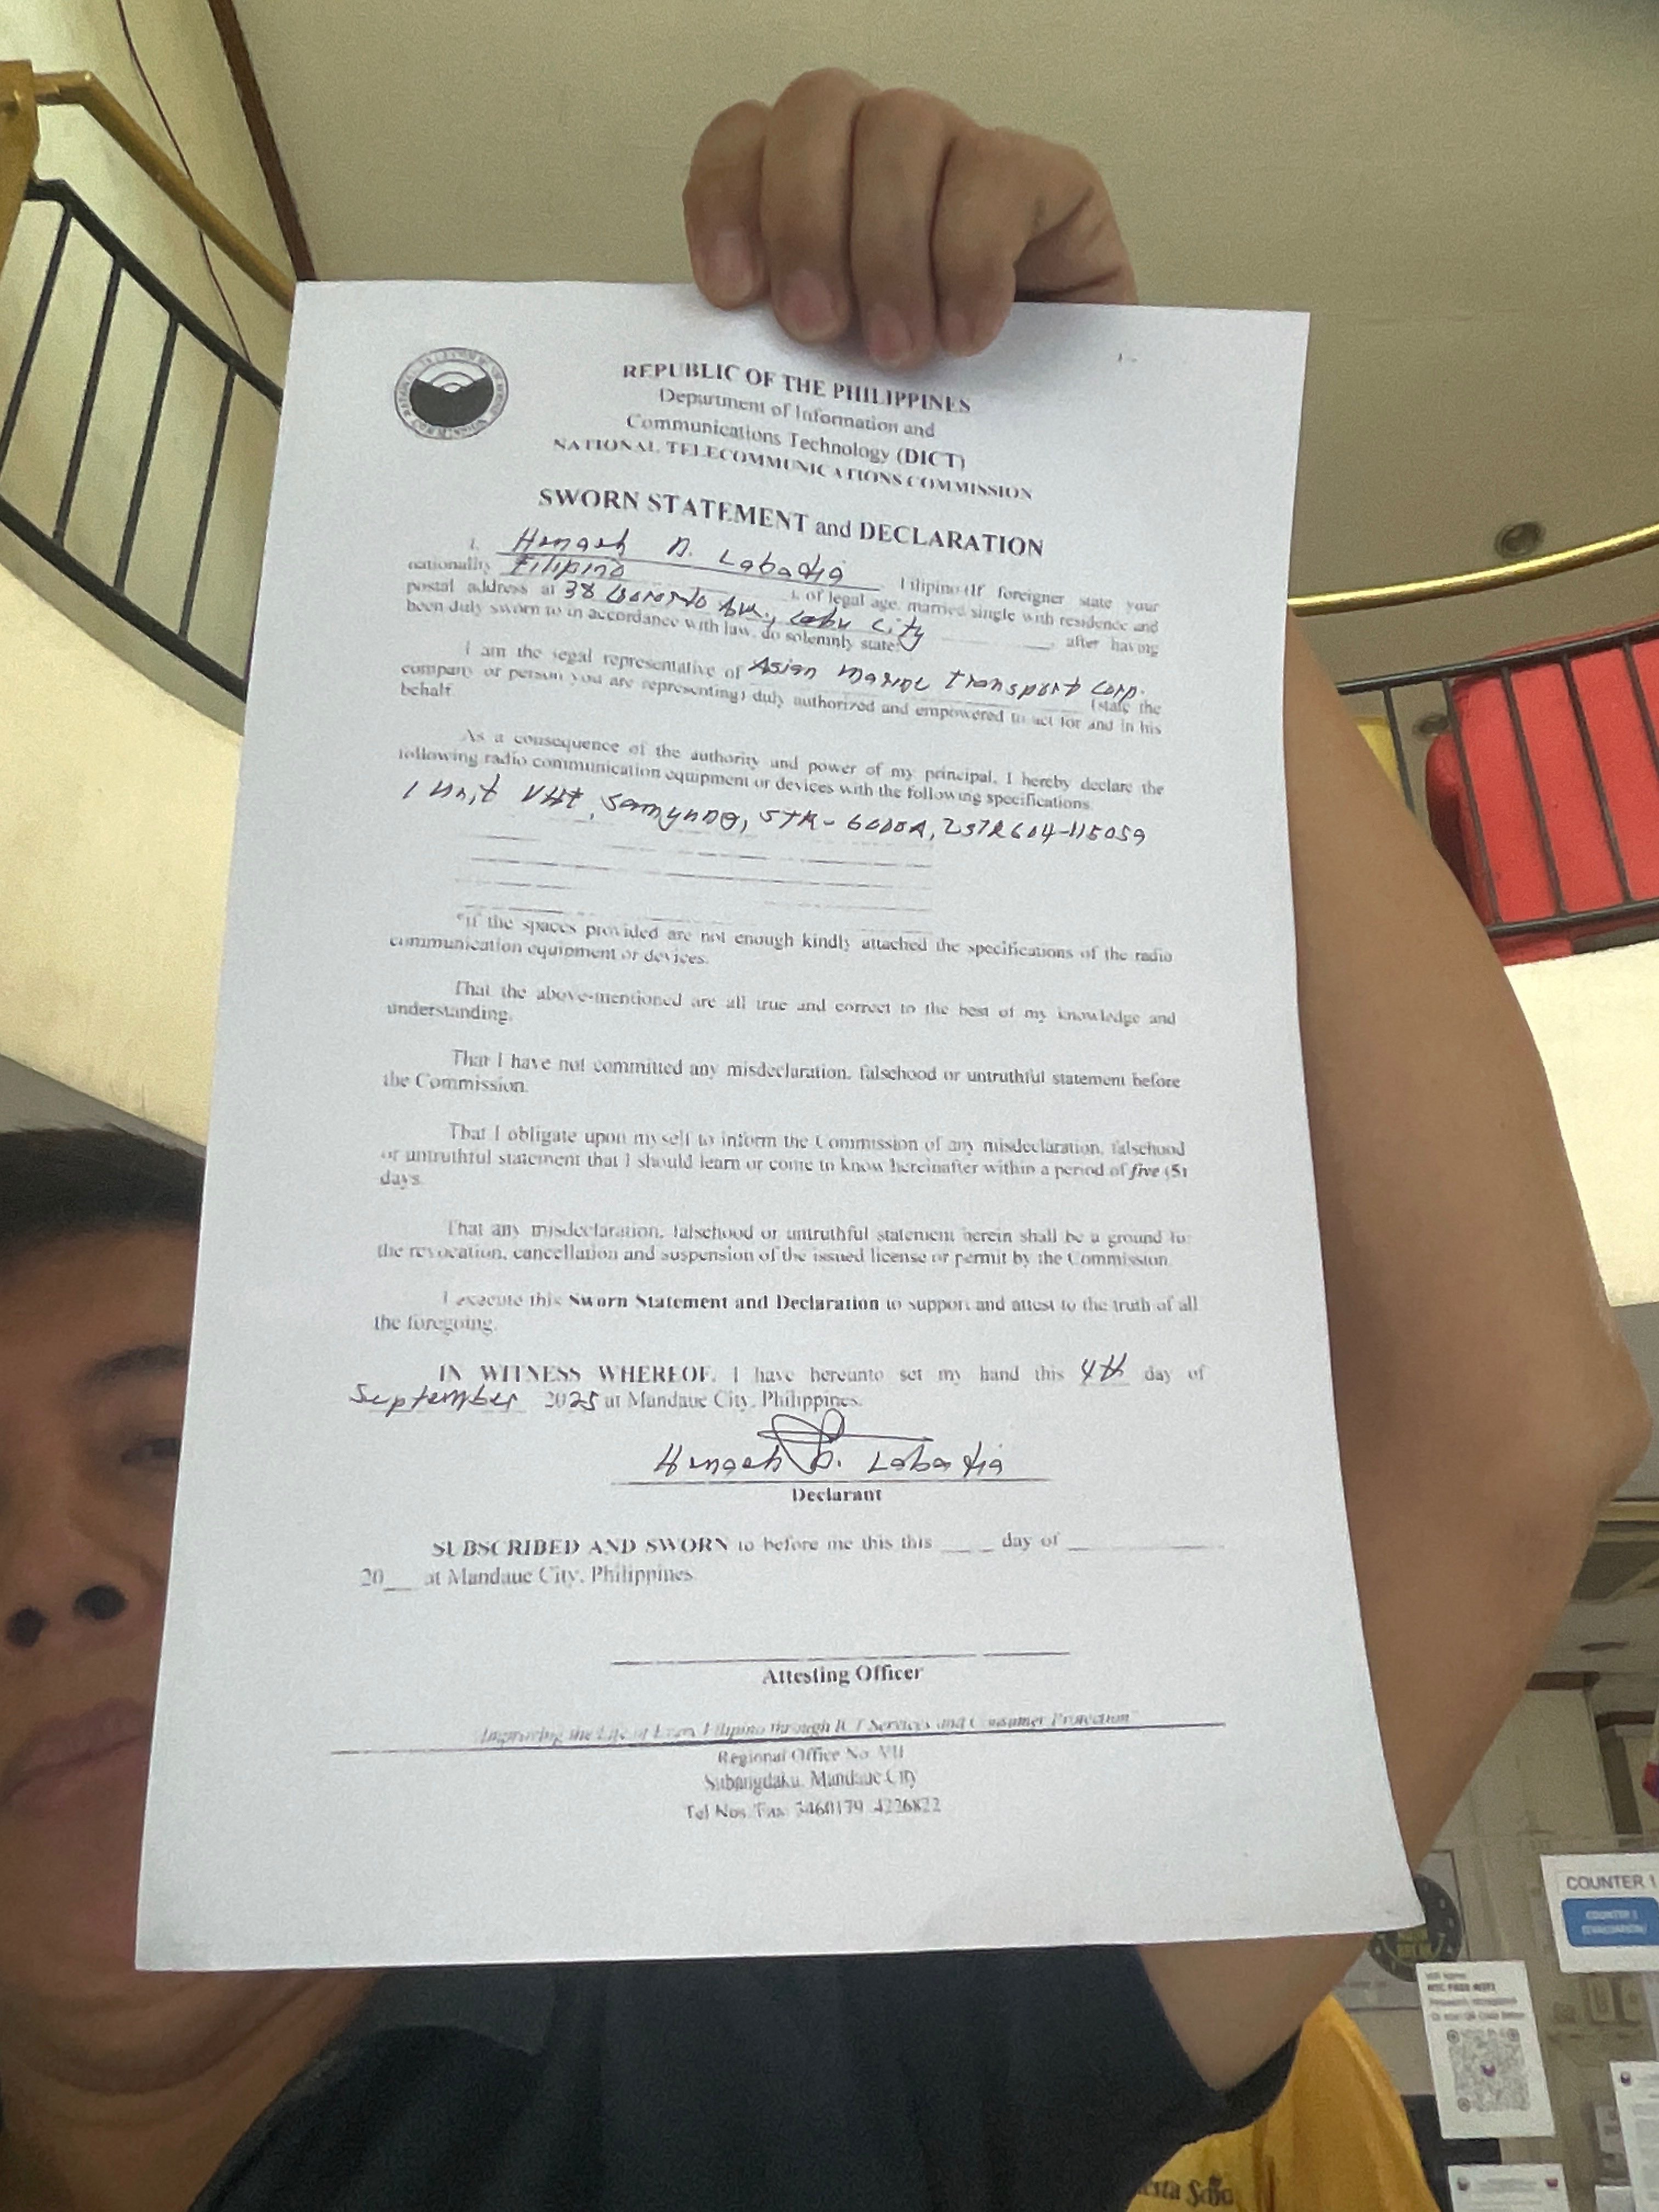 REPUBLIC OF THE PHILIPPINES
Department of Information and
Communications Technology (DICT)
NATIONAL TELECOMMUNICATIONS COMMISSION
SWORN STATEMENT and DECLARATION
I, D. Labadia
Filipino (If foreigner state your
nationality Filipino), of legal age, married/single with residence and
postal address at 38 Ave., Cebu City, after having
been duly sworn to in accordance with law, do solemnly state:
I am the legal representative of Asian Marine Transport Corp. (state the
company or person you are representing) duly authorized and empowered to act for and in his
behalf.
As a consequence of the authority and power of my principal, I hereby declare the
following radio communication equipment or devices with the following specifications:
1 Unit VHF, Samyung, STR-6000A, 2STR604-115059
*If the spaces provided are not enough kindly attached the specifications of the radio
communication equipment or devices.
That the above-mentioned are all true and correct to the best of my knowledge and
understanding.
That I have not committed any misdeclaration, falsehood or untruthful statement before
the Commission.
That I obligate upon myself to inform the Commission of any misdeclaration, falsehood
or untruthful statement that I should learn or come to know hereinafter within a period of five (5)
days.
That any misdeclaration, falsehood or untruthful statement herein shall be a ground for
the revocation, cancellation and suspension of the issued license or permit by the Commission.
I execute this Sworn Statement and Declaration to support and attest to the truth of all
the foregoing.
IN WITNESS WHEREOF, I have hereunto set my hand this 4th day of
September 2025 at Mandaue City, Philippines.
D. Labadia
Declarant
SUBSCRIBED AND SWORN to before me this this ____ day of ____
20__ at Mandaue City, Philippines.
Attesting Officer
"Improving the Life of Every Filipino through ICT Services and Consumer Protection"
Regional Office No. VII
Subangdaku, Mandaue City
Tel Nos/Fax: 3460179 4226822
COUNTER 1
COUNTER 1